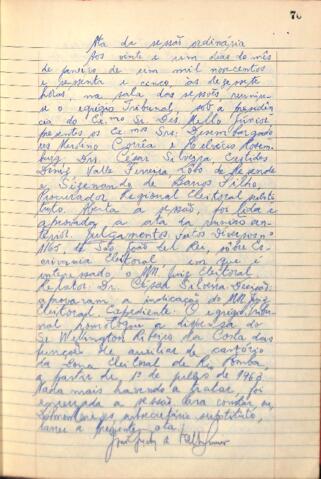 70
Ata da sessão ordinária
Aos vinte e um dias do mês
de janeiro de um mil novecentos
e sessenta e cinco, às dezessete
horas, na sala das sessões, reuniu-
se o egrégio Tribunal, sob a presidên-
cia do Exmo Sr. Des. Mello Júnior,
presentes os Exmos Snrs. Desembargado
res Merolino Corrêa e Helvécio Rosem-
burg, Drs. Cesar Silveira, Euclides
Diniz, Valle Ferreira, Lobo de Rezende
e Sizenando de Barros Filho,
Procurador Regional Eleitoral substi-
tuto. Aberta a sessão, foi lida e
aprovada a ata da reunião an-
terior. Julgamentos. Feitos Diversos nº
1165, de São João del Rei, sôbre Es-
crivania Eleitoral em que é
interessado, o MM. Juiz Eleitoral.
Relator: Dr. Cesar Silveira. Decisão:
aprovaram a indicação do MM. Juiz
Eleitoral. Expediente: O egrégio Tribu-
nal homologou a dispensa do
Sr. Wellington Ribeiro da Costa das
funções de auxiliar de cartório
da Zona Eleitoral de Rio Pomba,
a partir de 1º de julho de 1960.
Nada mais havendo a tratar, foi
encerrada a sessão. Para constar, eu,
secretário substituto,
lavrei a presente ata.